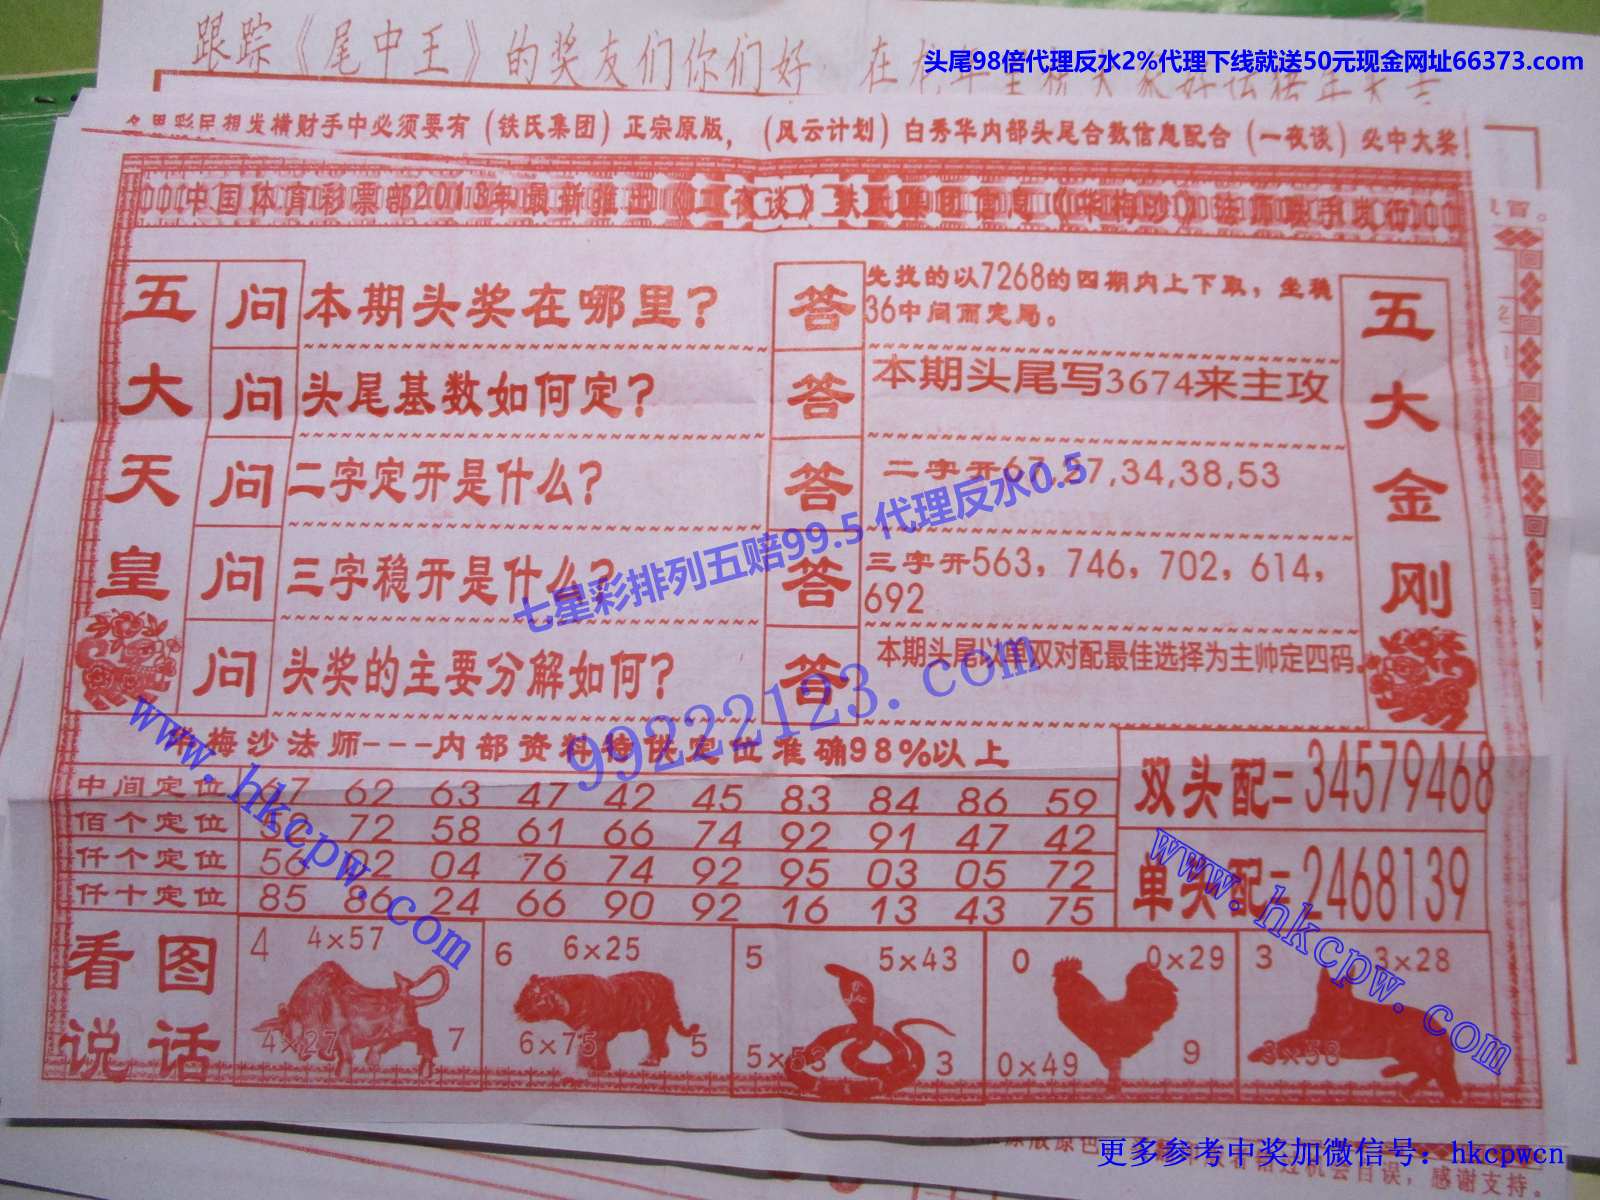 跟踪《尾中王》的奖友们你们好
头尾98倍代理反水2%代理下线就送50元现金网址66373.com
彩民想发横财手中必须要有(铁氏集团)正宗原版,(风云计划)白秀华内部头尾合数信息配合(一夜谈)必中大奖!
中国体育彩票部2013年最新推出《一夜谈》铁氏集团
五大天皇
问 本期头奖在哪里?
答 先找的以7268的四期内上下取,坐稳
36中间而定局。
问 头尾基数如何定?
答 本期头尾写3674来主攻
问 二字定开是什么?
答 二字开67,27,34,38,53
问 三字稳开是什么?
答 三字开563,746,702,614,
692
问 头奖的主要分解如何?
答 本期头尾以单双对配最佳选择为主帅定四码
五大金刚
七星彩排列五赔99.5 代理反水0.5
99222123.com
www.hkcpw.com
梅沙法师---内部资料特供定位准确98%以上
中间定位 67 62 63 47 42 45 83 84 86 59
佰个定位 72 58 61 66 74 92 91 47 42
仟个定位 56 02 04 76 74 92 95 03 05 72
仟十定位 85 86 24 66 90 92 16 13 43 75
双头配=34579468
单头配=2468139
www.hkcpw.com
看图
说话
4 4×57
4×27 7
6 6×25
6×75 5
5 5×43
5×53 3
0 0×29
0×49 9
3 3×28
3×58
更多参考中奖加微信号:hkcpwcn
感谢支持。